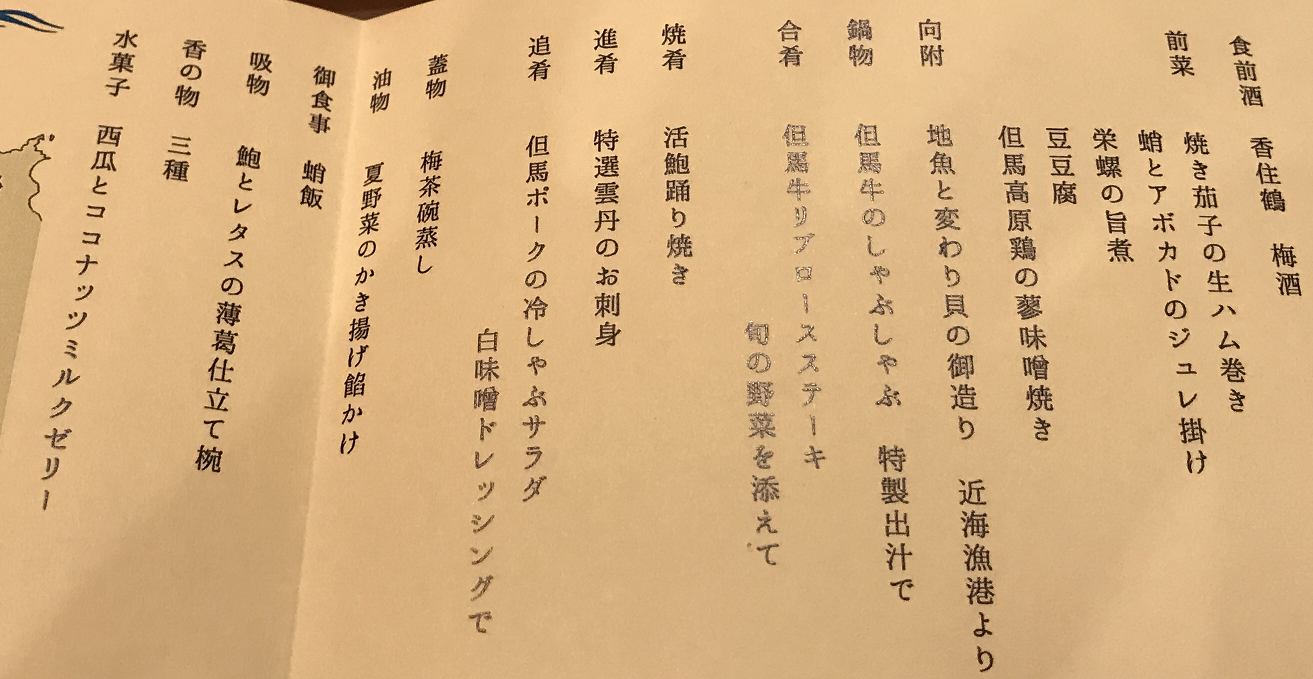 食前酒　香住鶴　梅酒
前菜　焼き茄子の生ハム巻き
蛸とアボカドのジュレ掛け
栄螺の旨煮
豆豆腐
但馬高原鶏の蓼味噌焼き
向附　地魚と変わり貝の御造り　近海漁港より
鍋物　但馬牛のしゃぶしゃぶ　特製出汁で
合肴　但馬牛リブロースステーキ
旬の野菜を添えて
焼肴　活鮑踊り焼き
進肴　特選雲丹のお刺身
追肴　但馬ポークの冷しゃぶサラダ
白味噌ドレッシングで
蓋物　梅茶碗蒸し
油物　夏野菜のかき揚げ餡かけ
御食事　蛸飯
吸物　鮑とレタスの薄葛仕立て椀
香の物　三種
水菓子　西瓜とココナッツミルクゼリー